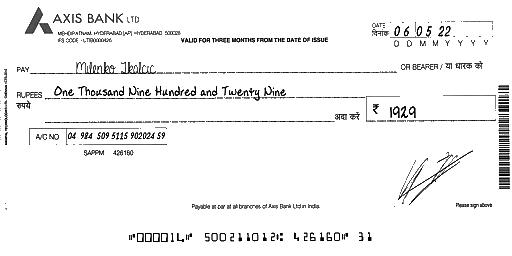 AXIS BANK LTD
MEHDIPATNAM, HYDERABAD (AP) HYDERABAD 500028
IFS CODE - UTIB0000426
VALID FOR THREE MONTHS FROM THE DATE OF ISSUE
DATE
दिनांक 06 05 22
D D M M Y Y Y Y
PAY Milenko Tkalcic OR BEARER / या धारक को
RUPEES One Thousand Nine Hundred and Twenty Nine
रुपये अदा करें ₹ 1929
A/C NO 04 984 509 5115 902024 59
SAPPM 426160
Payable at par at all branches of Axis Bank Ltd in India.
Please sign above
⑈000014⑈ 500211012⑆ 426160⑈ 31